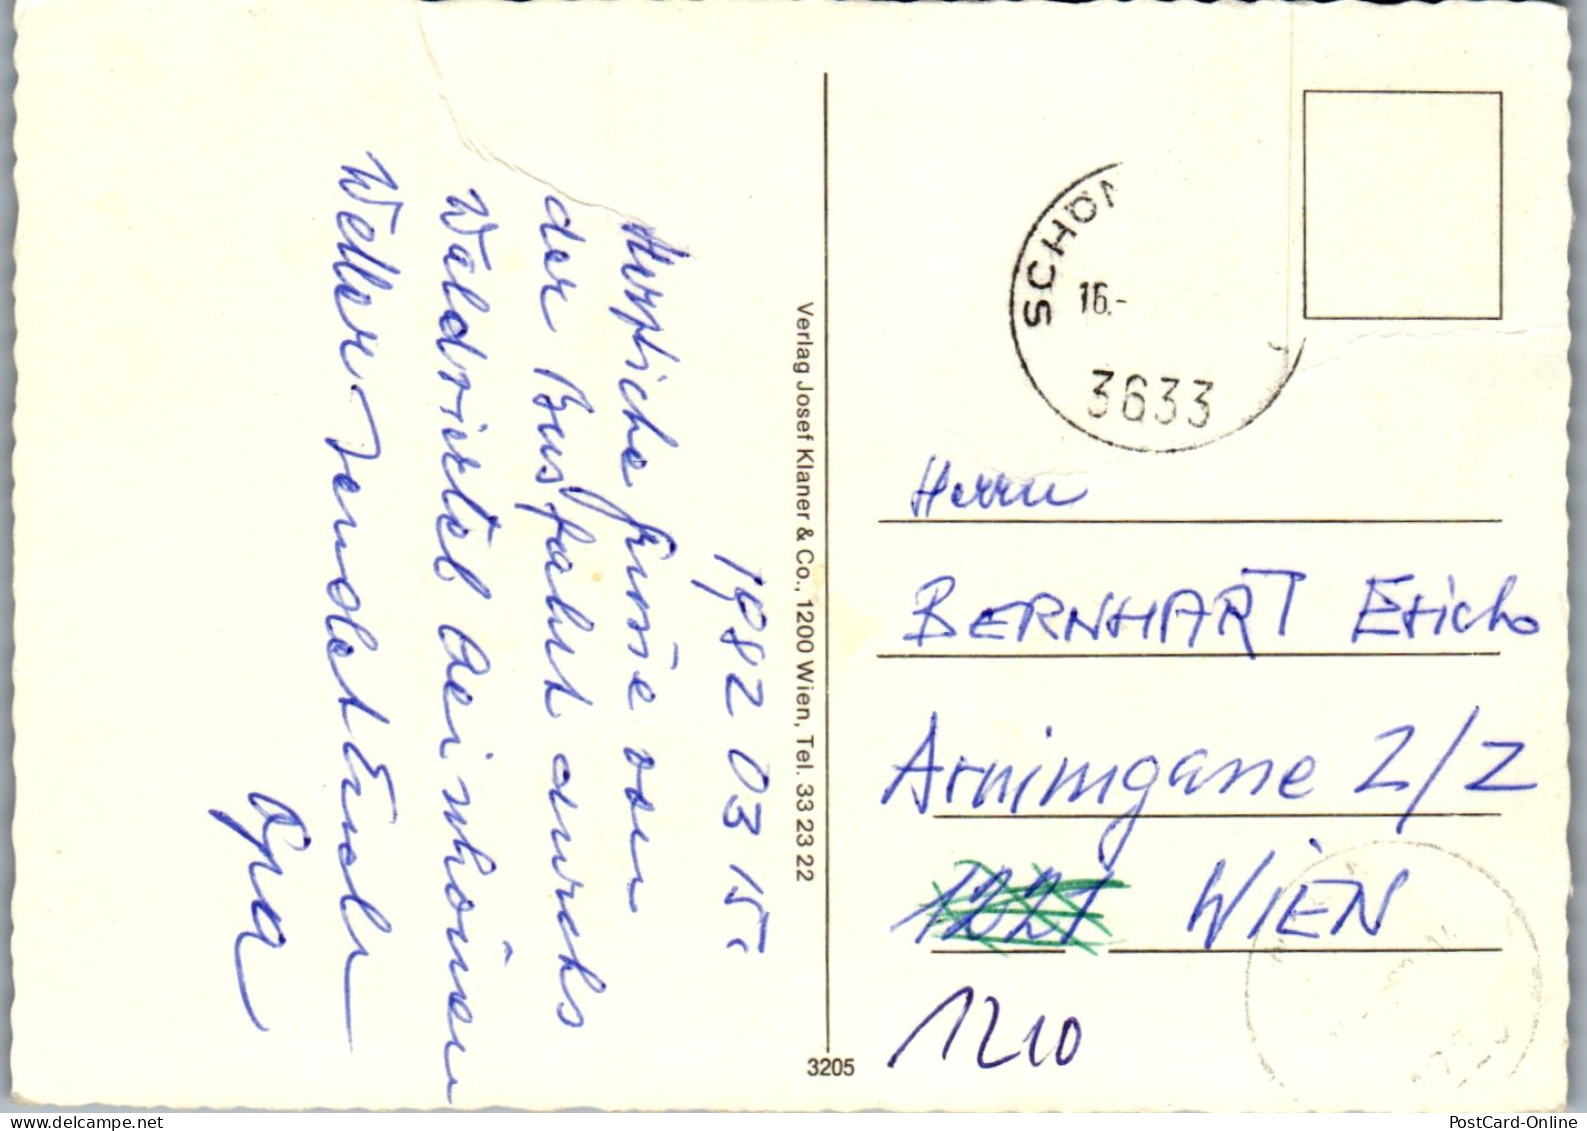 1982 03 15.
Herzliche Grüsse von
der Busfahrt durchs
Waldviertel bei schönem
Wetter sendet Euch
Opa
Verlag Josef Klaner & Co., 1200 Wien, Tel. 33 23 22
3205
SCHÖN
16.-
3633
Herrn
BERNHART Erich
Arnimgasse 2/2
1221 WIEN
1210
PostCard-Online